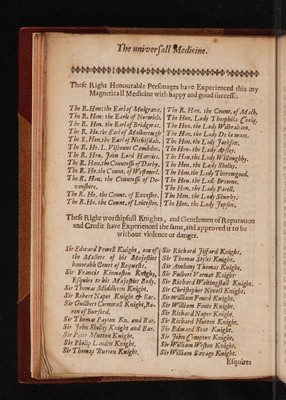 The universall Medicine.
These Right Honourable Personages have Experienced this my
Magneticall Medicine with happy and good successe.
The R. Hon: the Earl of Mulgrave,
The R. Hon: the Earle of Norwich.
The R. Hon. the Earl of Bridgwat.
The R. Ho. the Earl of Malborough
The R. Hon. the Earl of Nithisdale.
The R. Ho. L. Viscount Cambden.
The R. Hon. John Lord Harries.
The R. Hon. the Countess of Darby.
The R. Ho. the Count. of Westmorl.
The R. Hon. the Countesse of De-
vonshire.
The R. Ho. the Count. of Excester.
The R. Ho. the Count. of Leicester,
The R. Hon. the Count. of Math.
The Hon. Lady Theophila Coaig.
The Hon. the Lady
The Hon. the Lady De la ware.
The Hon. the Lady Jackson.
The Hon. the Lady Apsley.
The Hon. the Lady Willoughby.
The Hon. the Lady Shelley.
The Hon. the Lady Thorowgood.
The Hon. the Lady Browne.
The Hon. the Lady Powell.
The Hon. the Lady
The Hon. the Lady Jepson.
These Right worshipfull Knights, and Gentlemen of Reputation
and Credit have Experienced the same, and approved it to be
without violence or danger.
Sir Edward Powell Knight, one of
the Masters of his Majesties
honorable Court of Requests.
Sir Francis Kinnaston Knight,
Esquire to his Majesties Body.
Sir Thomas Middleton Knight.
Sir Robert Naper Knight & Bar.
Sir Guilbert Cornwall Knight, Ba-
ron of Burford.
Sir Thomas Payton Kn. and Bar.
Sir John Shelley Knight and Bar.
Sir Peter Mutton Knight.
Sir Philip Landen Knight.
Sir Thomas Burton Knight.
Sir Richard Knight.
Sir Thomas Stiles Knight.
Sir Anthony Thomas Knight.
Sir Fulbert Vernat Knight
Sir Richard Knight.
Sir Christopher Nevill Knight.
Sir William Powell Knight.
Sir William Foster Knight.
Sir Richard Naper Knight.
Sir Richard Hutton Knight.
Sir Edward Scot Knight.
Sir John Compton Knight.
Sir William Wiston Knight.
Sir William Savage Knight.
Esquires